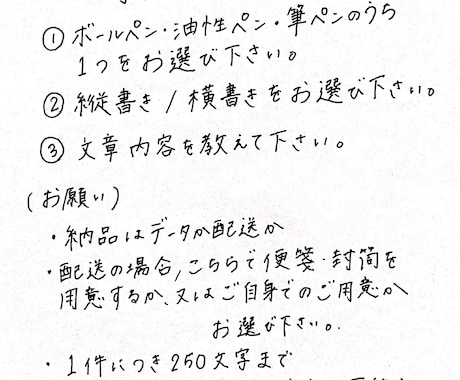 ① ボールペン・油性ペン・筆ペンのうち
1つをお選び下さい。
② 縦書き / 横書きをお選び下さい。
③ 文章内容を教えて下さい。
(お願い)
・納品はデータか配送か
・配送の場合,こちらで便箋・封筒を
用意するか、又はご自身でのご用意か
お選び下さい。
・1件につき250文字まで